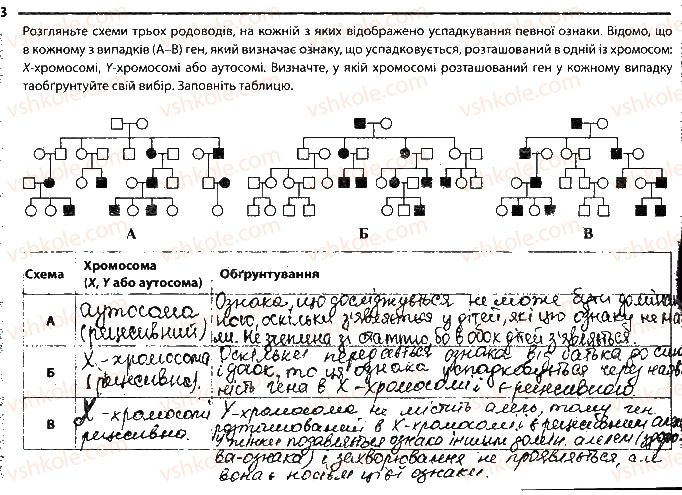 3
Розгляньте схеми трьох родоводів, на кожній з яких відображено успадкування певної ознаки. Відомо, що
в кожному з випадків (А–В) ген, який визначає ознаку, що успадковується, розташований в одній із хромосом:
X-хромосомі, Y-хромосомі або аутосомі. Визначте, у якій хромосомі розташований ген у кожному випадку
таобґрунтуйте свій вибір. Заповніть таблицю.
А Б В
Схема Хромосома (X, Y або аутосома) Обґрунтування
А аутосома (рецесивний)
Ознака, що досліджується не може бути доміна-
ною, оскільки з'являється у дітей, які цю ознаку не ма-
ли. Не зчеплена зі статтю, бо в обох дітей з'являється.
Б X-хромосома (рецесивна)
Оскільки передається ознака від батька до сина
і дочок, то ця ознака успадковується через наяв-
ність гена в X-хромосомі і є рецесивного.
В X-хромосомі рецесивна
Y-хромосома не містить алель, тому ген
розташований в X-хромосомі, в рецесивним
у жінки позавляться ознако іншим домін. алелем
ва-ознака) і захворювання не проявляється, але
вона є носієм цієї ознаки.
vshkole.com